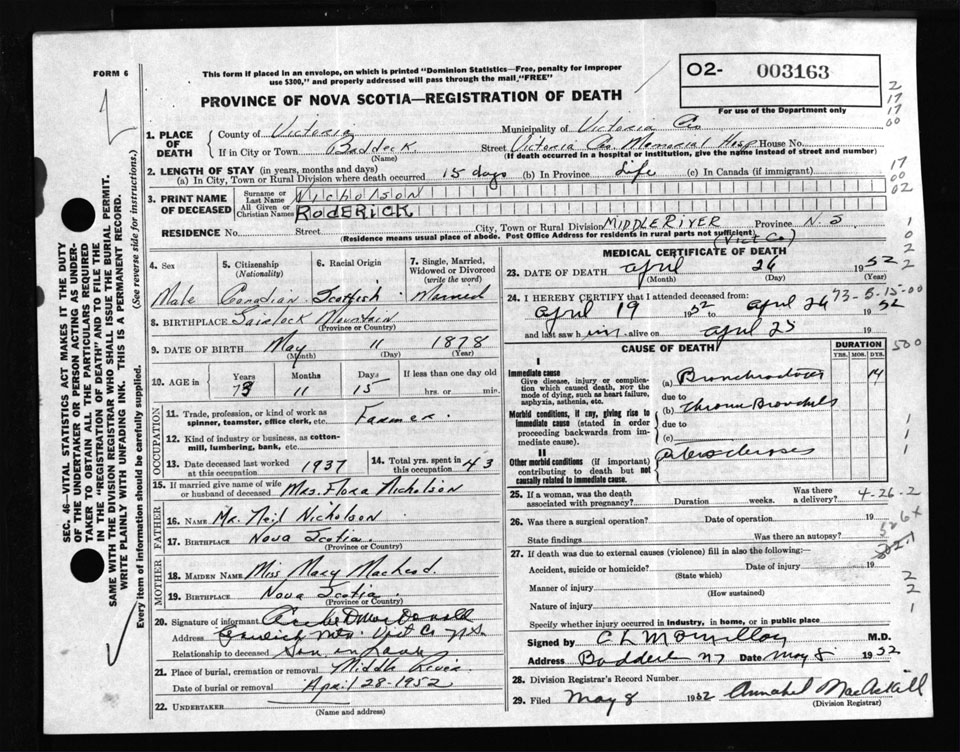 FORM 6
This form if placed in an envelope, on which is printed "Dominion Statistics—Free, penalty for improper
use $300," and properly addressed will pass through the mail "FREE"
PROVINCE OF NOVA SCOTIA—REGISTRATION OF DEATH
O2- 003163
For use of the Department only
2
17
17
00
1. PLACE OF DEATH
County of Victoria Municipality of Victoria Co
If in City or Town Baddeck Street Victoria Co. Memorial Hosp. House No.
(Name) (If death occurred in a hospital or institution, give the name instead of street and number)
2. LENGTH OF STAY (in years, months and days)
(a) In City, Town or Rural Division where death occurred 15 days (b) In Province Life (c) In Canada (if immigrant)
17
00
02
3. PRINT NAME OF DECEASED
Surname or Last Name Nicholson
All Given or Christian Names RODERICK
RESIDENCE No. Street City, Town or Rural Division MIDDLE RIVER Province N.S
(Residence means usual place of abode. Post Office Address for residents in rural parts not sufficient) (Vict Co)
1
0
2
2
4. Sex 5. Citizenship (Nationality) 6. Racial Origin 7. Single, Married, Widowed or Divorced (write the word)
Male Canadian Scottish Married
8. BIRTHPLACE Mountain
(Province or Country)
9. DATE OF BIRTH May 11 1878
(Month) (Day) (Year)
10. AGE in Years Months Days If less than one day old
73 11 15 hrs. or min.
OCCUPATION
11. Trade, profession, or kind of work as spinner, teamster, office clerk, etc. Farmer.
12. Kind of industry or business, as cotton-mill, lumbering, bank, etc.
13. Date deceased last worked at this occupation 1937 14. Total yrs. spent in this occupation 43
15. If married give name of wife or husband of deceased Mrs. Flora Nicholson
FATHER
16. NAME Mr. Neil Nicholson
17. BIRTHPLACE Nova Scotia.
(Province or Country)
MOTHER
18. MAIDEN NAME Miss Mary MacLeod.
19. BIRTHPLACE Nova Scotia.
(Province or Country)
20. Signature of informant MacDonald
Address Vict Co N.S.
Relationship to deceased Son in Law
21. Place of burial, cremation or removal Middle River
Date of burial or removal April 28-1952
22. UNDERTAKER
(Name and address)
MEDICAL CERTIFICATE OF DEATH
23. DATE OF DEATH April 26 1952
(Month) (Day) (Year)
24. I HEREBY CERTIFY that I attended deceased from: 73-5-15-00
April 19 1952 to April 26 1952
and last saw him alive on April 25 19
CAUSE OF DEATH
DURATION
YRS. MOS. DYS.
500
I
Immediate cause
Give disease, injury or complication which caused death, NOT the mode of dying, such as heart failure, asphyxia, asthenia, etc.
(a) 14
due to
Morbid conditions, if any, giving rise to immediate cause (stated in order proceeding backwards from immediate cause).
(b) Chronic Bronchitis
due to
(c)
II
Other morbid conditions (if important) contributing to death but not causally related to immediate cause.
1
1
1
25. If a woman, was the death associated with pregnancy? Duration weeks. Was there a delivery?
4-26-2
26. Was there a surgical operation? Date of operation. 19
State findings Was there an autopsy?
27. If death was due to external causes (violence) fill in also the following:—
Accident, suicide or homicide? Date of injury 19
(State which)
Manner of injury
(How sustained)
Nature of injury
Specify whether injury occurred in industry, in home, or in public place
2
2
1
Signed by C L M.D.
Address Baddeck NS Date May 8 1952
28. Division Registrar's Record Number
29. Filed May 8 1952 Annabel MacAskill
(Division Registrar)
SEC. 46—VITAL STATISTICS ACT MAKES IT THE DUTY
OF THE UNDERTAKER OR PERSON ACTING AS UNDER-
TAKER TO OBTAIN ALL THE PARTICULARS REQUIRED
IN THE "REGISTRATION OF DEATH" AND TO FILE THE
SAME WITH THE DIVISION REGISTRAR WHO SHALL ISSUE THE BURIAL PERMIT.
WRITE PLAINLY WITH UNFADING INK. THIS IS A PERMANENT RECORD.
Every item of information should be carefully supplied. (See reverse side for instructions.)